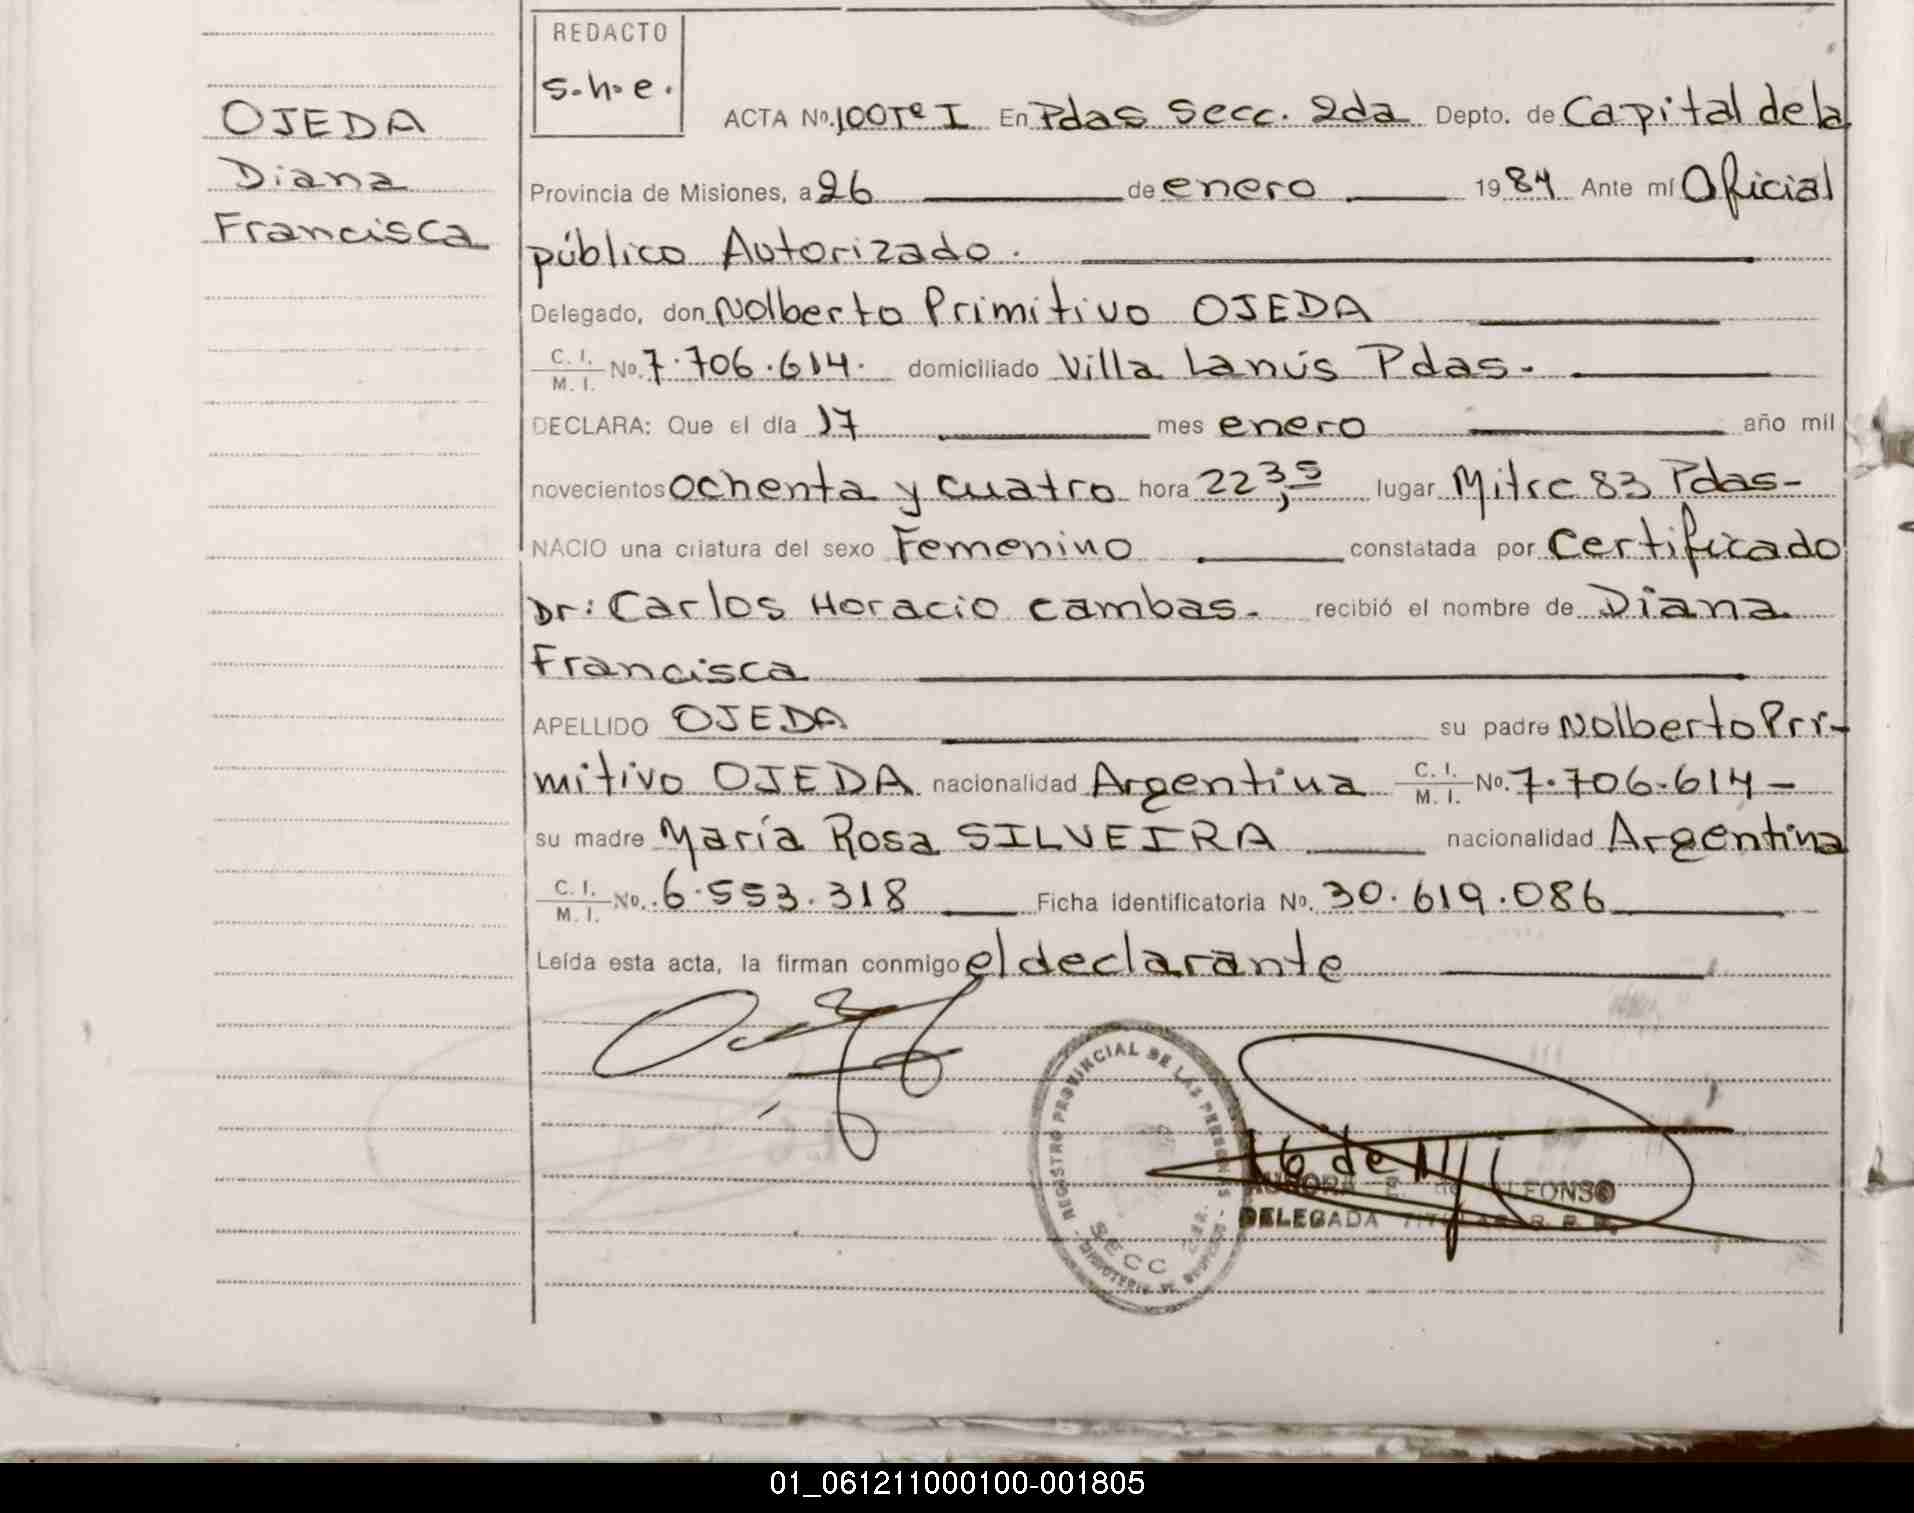 REDACTO
s.h.e.
OJEDA
Diana
Francisca
ACTA Nº. 100 Tº I En Pdas Secc. 2da Depto. de Capital de la
Provincia de Misiones, a 26 de enero 1984 Ante mí Oficial
público Autorizado.
Delegado, don Nolberto Primitivo OJEDA
C. I. / M. I. Nº. 7.706.614. domiciliado Villa Lanús Pdas.
DECLARA: Que el día 17 mes enero año mil
novecientos ochenta y cuatro hora 22,35 lugar Mitre 83 Pdas-
NACIO una criatura del sexo Femenino constatada por Certificado
Dr: Carlos Horacio Cambas. recibió el nombre de Diana
Francisca
APELLIDO OJEDA su padre Nolberto Pri-
mitivo OJEDA nacionalidad Argentina C. I. / M. I. Nº. 7.706.614-
su madre María Rosa SILVEIRA nacionalidad Argentina
C. I. / M. I. Nº. 6.553.318 Ficha identificatoria Nº. 30.619.086
Leída esta acta, la firman conmigo el declarante
REGISTRO PROVINCIAL DE LAS PERSONAS
SECC 2da.
AURORA de ALFONSO
DELEGADA TITULAR R. P. P.
01_061211000100-001805